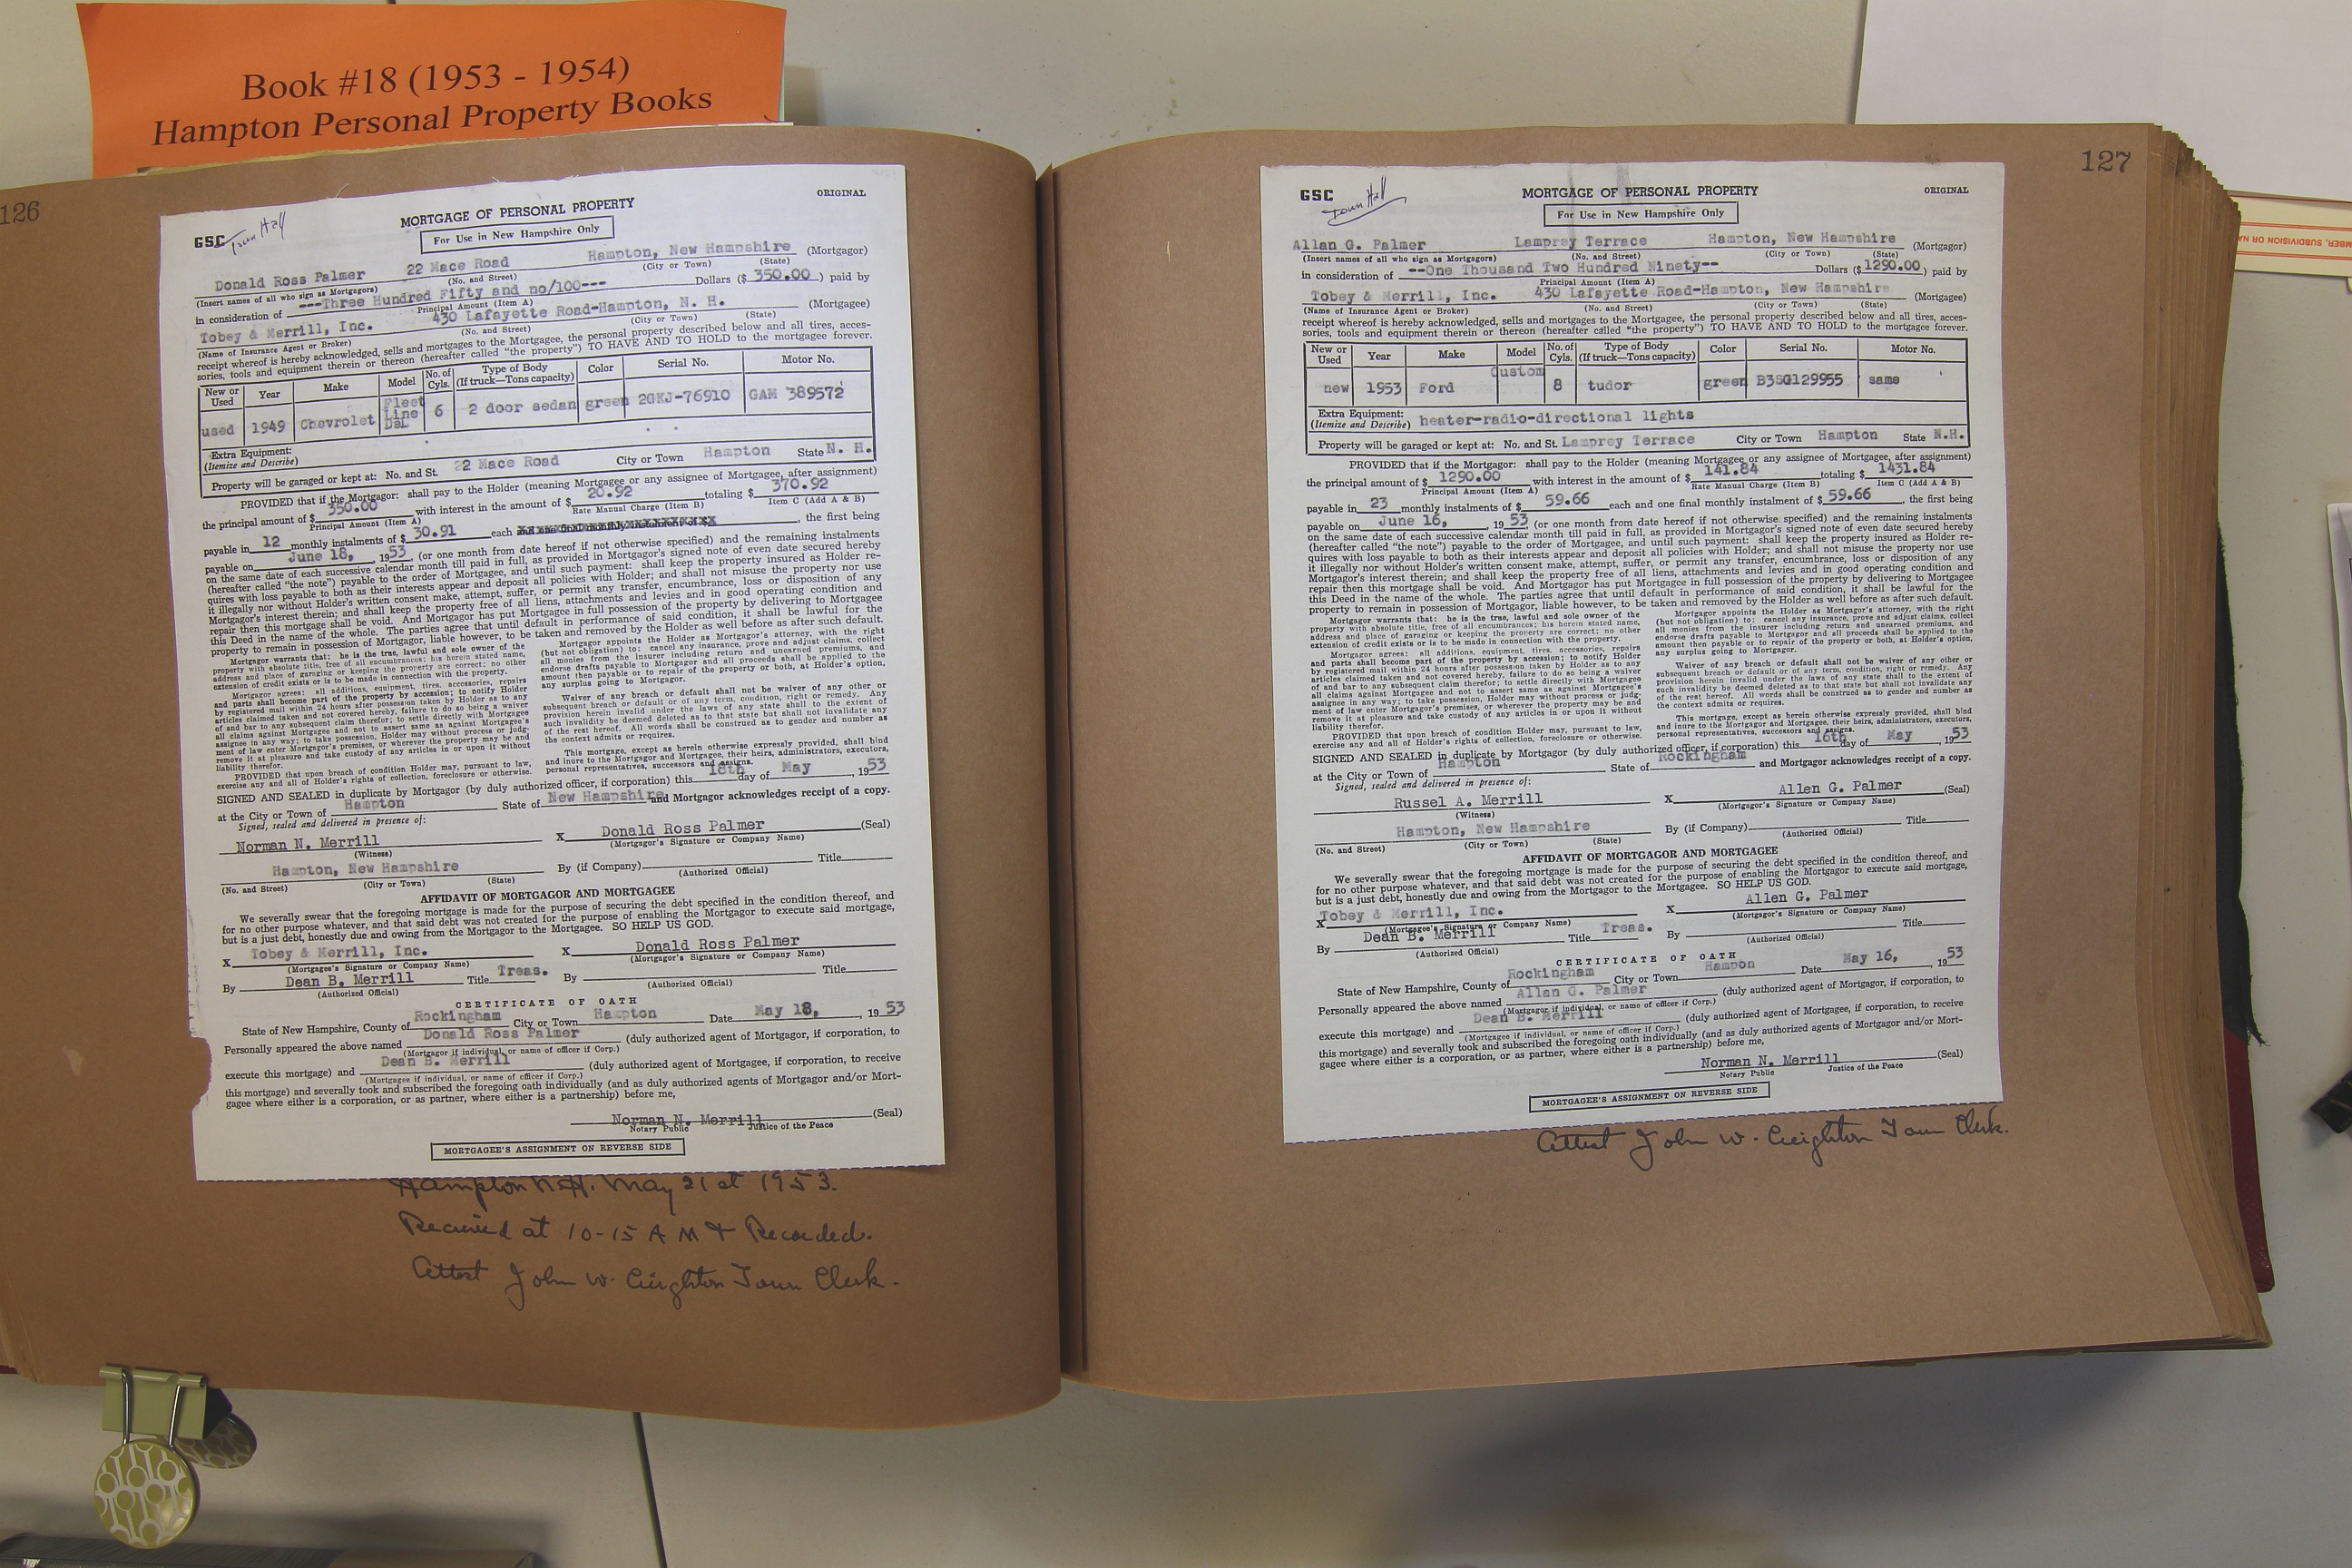 Book #18 (1953 - 1954)
Hampton Personal Property Books
126
GSC Town Hall
MORTGAGE OF PERSONAL PROPERTY
ORIGINAL
For Use in New Hampshire Only
Donald Ross Palmer 22 Mace Road Hampton, New Hampshire (Mortgagor)
(Insert names of all who sign as Mortgagors) (No. and Street) (City or Town) (State)
in consideration of ---Three Hundred Fifty and no/100--- Dollars ($ 350.00 ) paid by
Principal Amount (Item A)
Tobey & Merrill, Inc. 430 Lafayette Road-Hampton, N. H. (Mortgagee)
(Name of Insurance Agent or Broker) (No. and Street) (City or Town) (State)
receipt whereof is hereby acknowledged, sells and mortgages to the Mortgagee, the personal property described below and all tires, acces-
sories, tools and equipment therein or thereon (hereafter called "the property") TO HAVE AND TO HOLD to the mortgagee forever.
New or Used Year Make Model No. of Cyls. Type of Body (If truck—Tons capacity) Color Serial No. Motor No.
used 1949 Chevrolet Fleet Line DeL 6 2 door sedan green 2GKJ-76910 GAM 389572
Extra Equipment:
(Itemize and Describe)
Property will be garaged or kept at: No. and St. 22 Mace Road City or Town Hampton State N. H.
PROVIDED that if the Mortgagor: shall pay to the Holder (meaning Mortgagee or any assignee of Mortgagee, after assignment)
the principal amount of $ 350.00 with interest in the amount of $ 20.92 totaling $ 370.92
Principal Amount (Item A) Rate Manual Charge (Item B) Item C (Add A & B)
payable in 12 monthly instalments of $ 30.91 each and one final monthly instalment of $ , the first being
payable on June 18, , 19 53 (or one month from date hereof if not otherwise specified) and the remaining instalments
on the same date of each successive calendar month till paid in full, as provided in Mortgagor's signed note of even date secured hereby
(hereafter called "the note") payable to the order of Mortgagee, and until such payment: shall keep the property insured as Holder re-
quires with loss payable to both as their interests appear and deposit all policies with Holder; and shall not misuse the property nor use
it illegally nor without Holder's written consent make, attempt, suffer, or permit any transfer, encumbrance, loss or disposition of any
Mortgagor's interest therein; and shall keep the property free of all liens, attachments and levies and in good operating condition and
repair then this mortgage shall be void. And Mortgagor has put Mortgagee in full possession of the property by delivering to Mortgagee
this Deed in the name of the whole. The parties agree that until default in performance of said condition, it shall be lawful for the
property to remain in possession of Mortgagor, liable however, to be taken and removed by the Holder as well before as after such default.
Mortgagor warrants that: he is the true, lawful and sole owner of the
property with absolute title, free of all encumbrances; his herein stated name,
address and place of garaging or keeping the property are correct; no other
extension of credit exists or is to be made in connection with the property.
Mortgagor agrees: all additions, equipment, tires, accessories, repairs
and parts shall become part of the property by accession; to notify Holder
by registered mail within 24 hours after possession taken by Holder as to any
articles claimed taken and not covered hereby, failure to do so being a waiver
of and bar to any subsequent claim therefor; to settle directly with Mortgagee
all claims against Mortgagee and not to assert same as against Mortgagee's
assignee in any way; to take possession, Holder may without process or judg-
ment of law enter Mortgagor's premises, or wherever the property may be and
remove it at pleasure and take custody of any articles in or upon it without
liability therefor.
PROVIDED that upon breach of condition Holder may, pursuant to law,
exercise any and all of Holder's rights of collection, foreclosure or otherwise.
Mortgagor appoints the Holder as Mortgagor's attorney, with the right
(but not obligation) to: cancel any insurance, prove and adjust claims, collect
all monies from the insurer including return and unearned premiums, and
endorse drafts payable to Mortgagor and all proceeds shall be applied to the
amount then payable or to repair of the property or both, at Holder's option,
any surplus going to Mortgagor.
Waiver of any breach or default shall not be waiver of any other or
subsequent breach or default or of any term, condition, right or remedy. Any
provision herein invalid under the laws of any state shall to the extent of
such invalidity be deemed deleted as to that state but shall not invalidate any
of the rest hereof. All words shall be construed as to gender and number as
the context admits or requires.
This mortgage, except as herein otherwise expressly provided, shall bind
and inure to the Mortgagor and Mortgagee, their heirs, administrators, executors,
personal representatives, successors and assigns.
SIGNED AND SEALED in duplicate by Mortgagor (by duly authorized officer, if corporation) this 18th day of May , 19 53
at the City or Town of Hampton State of New Hampshire and Mortgagor acknowledges receipt of a copy.
Signed, sealed and delivered in presence of:
Norman N. Merrill X Donald Ross Palmer (Seal)
(Witness) (Mortgagor's Signature or Company Name)
Hampton, New Hampshire By (if Company) Title
(No. and Street) (City or Town) (State) (Authorized Official)
AFFIDAVIT OF MORTGAGOR AND MORTGAGEE
We severally swear that the foregoing mortgage is made for the purpose of securing the debt specified in the condition thereof, and
for no other purpose whatever, and that said debt was not created for the purpose of enabling the Mortgagor to execute said mortgage,
but is a just debt, honestly due and owing from the Mortgagor to the Mortgagee. SO HELP US GOD.
X Tobey & Merrill, Inc. X Donald Ross Palmer
(Mortgagee's Signature or Company Name) (Mortgagor's Signature or Company Name)
By Dean B. Merrill Title Treas. By Title
(Authorized Official) (Authorized Official)
CERTIFICATE OF OATH
State of New Hampshire, County of Rockingham City or Town Hampton Date May 18, 19 53
Personally appeared the above named Donald Ross Palmer (duly authorized agent of Mortgagor, if corporation, to
(Mortgagor if individual, or name of officer if Corp.)
execute this mortgage) and Dean B. Merrill (duly authorized agent of Mortgagee, if corporation, to receive
(Mortgagee if individual, or name of officer if Corp.)
this mortgage) and severally took and subscribed the foregoing oath individually (and as duly authorized agents of Mortgagor and/or Mort-
gagee where either is a corporation, or as partner, where either is a partnership) before me,
Norman N. Merrill (Seal)
Notary Public Justice of the Peace
MORTGAGEE'S ASSIGNMENT ON REVERSE SIDE
Hampton N.H. May 21st 1953.
Received at 10-15 A M & Recorded.
Attest John W. Creighton Town Clerk.
127
GSC Town Hall
MORTGAGE OF PERSONAL PROPERTY
ORIGINAL
For Use in New Hampshire Only
Allan G. Palmer Lamprey Terrace Hampton, New Hampshire (Mortgagor)
(Insert names of all who sign as Mortgagors) (No. and Street) (City or Town) (State)
in consideration of --One Thousand Two Hundred Ninety-- Dollars ($ 1290.00 ) paid by
Principal Amount (Item A)
Tobey & Merrill, Inc. 430 Lafayette Road-Hampton, New Hampshire (Mortgagee)
(Name of Insurance Agent or Broker) (No. and Street) (City or Town) (State)
receipt whereof is hereby acknowledged, sells and mortgages to the Mortgagee, the personal property described below and all tires, acces-
sories, tools and equipment therein or thereon (hereafter called "the property") TO HAVE AND TO HOLD to the mortgagee forever.
New or Used Year Make Model No. of Cyls. Type of Body (If truck—Tons capacity) Color Serial No. Motor No.
new 1953 Ford Custom 8 tudor green B3SG129955 same
Extra Equipment: heater-radio-directional lights
(Itemize and Describe)
Property will be garaged or kept at: No. and St. Lamprey Terrace City or Town Hampton State N.H.
PROVIDED that if the Mortgagor: shall pay to the Holder (meaning Mortgagee or any assignee of Mortgagee, after assignment)
the principal amount of $ 1290.00 with interest in the amount of $ 141.84 totaling $ 1431.84
Principal Amount (Item A) Rate Manual Charge (Item B) Item C (Add A & B)
payable in 23 monthly instalments of $ 59.66 each and one final monthly instalment of $ 59.66 , the first being
payable on June 16, , 19 53 (or one month from date hereof if not otherwise specified) and the remaining instalments
on the same date of each successive calendar month till paid in full, as provided in Mortgagor's signed note of even date secured hereby
(hereafter called "the note") payable to the order of Mortgagee, and until such payment: shall keep the property insured as Holder re-
quires with loss payable to both as their interests appear and deposit all policies with Holder; and shall not misuse the property nor use
it illegally nor without Holder's written consent make, attempt, suffer, or permit any transfer, encumbrance, loss or disposition of any
Mortgagor's interest therein; and shall keep the property free of all liens, attachments and levies and in good operating condition and
repair then this mortgage shall be void. And Mortgagor has put Mortgagee in full possession of the property by delivering to Mortgagee
this Deed in the name of the whole. The parties agree that until default in performance of said condition, it shall be lawful for the
property to remain in possession of Mortgagor, liable however, to be taken and removed by the Holder as well before as after such default.
Mortgagor warrants that: he is the true, lawful and sole owner of the
property with absolute title, free of all encumbrances; his herein stated name,
address and place of garaging or keeping the property are correct; no other
extension of credit exists or is to be made in connection with the property.
Mortgagor agrees: all additions, equipment, tires, accessories, repairs
and parts shall become part of the property by accession; to notify Holder
by registered mail within 24 hours after possession taken by Holder as to any
articles claimed taken and not covered hereby, failure to do so being a waiver
of and bar to any subsequent claim therefor; to settle directly with Mortgagee
all claims against Mortgagee and not to assert same as against Mortgagee's
assignee in any way; to take possession, Holder may without process or judg-
ment of law enter Mortgagor's premises, or wherever the property may be and
remove it at pleasure and take custody of any articles in or upon it without
liability therefor.
PROVIDED that upon breach of condition Holder may, pursuant to law,
exercise any and all of Holder's rights of collection, foreclosure or otherwise.
Mortgagor appoints the Holder as Mortgagor's attorney, with the right
(but not obligation) to: cancel any insurance, prove and adjust claims, collect
all monies from the insurer including return and unearned premiums, and
endorse drafts payable to Mortgagor and all proceeds shall be applied to the
amount then payable or to repair of the property or both, at Holder's option,
any surplus going to Mortgagor.
Waiver of any breach or default shall not be waiver of any other or
subsequent breach or default or of any term, condition, right or remedy. Any
provision herein invalid under the laws of any state shall to the extent of
such invalidity be deemed deleted as to that state but shall not invalidate any
of the rest hereof. All words shall be construed as to gender and number as
the context admits or requires.
This mortgage, except as herein otherwise expressly provided, shall bind
and inure to the Mortgagor and Mortgagee, their heirs, administrators, executors,
personal representatives, successors and assigns.
SIGNED AND SEALED in duplicate by Mortgagor (by duly authorized officer, if corporation) this 16th day of May , 19 53
at the City or Town of Hampton State of Rockingham and Mortgagor acknowledges receipt of a copy.
Signed, sealed and delivered in presence of:
Russel A. Merrill X Allen G. Palmer (Seal)
(Witness) (Mortgagor's Signature or Company Name)
Hampton, New Hampshire By (if Company) Title
(No. and Street) (City or Town) (State) (Authorized Official)
AFFIDAVIT OF MORTGAGOR AND MORTGAGEE
We severally swear that the foregoing mortgage is made for the purpose of securing the debt specified in the condition thereof, and
for no other purpose whatever, and that said debt was not created for the purpose of enabling the Mortgagor to execute said mortgage,
but is a just debt, honestly due and owing from the Mortgagor to the Mortgagee. SO HELP US GOD.
X Tobey & Merrill, Inc. X Allen G. Palmer
(Mortgagee's Signature or Company Name) (Mortgagor's Signature or Company Name)
By Dean B. Merrill Title Treas. By Title
(Authorized Official) (Authorized Official)
CERTIFICATE OF OATH
State of New Hampshire, County of Rockingham City or Town Hampon Date May 16, , 19 53
Personally appeared the above named Allan G. Palmer (duly authorized agent of Mortgagor, if corporation, to
(Mortgagor if individual, or name of officer if Corp.)
execute this mortgage) and Dean B. Merrill (duly authorized agent of Mortgagee, if corporation, to receive
(Mortgagee if individual, or name of officer if Corp.)
this mortgage) and severally took and subscribed the foregoing oath individually (and as duly authorized agents of Mortgagor and/or Mort-
gagee where either is a corporation, or as partner, where either is a partnership) before me,
Norman N. Merrill (Seal)
Notary Public Justice of the Peace
MORTGAGEE'S ASSIGNMENT ON REVERSE SIDE
Attest John W. Creighton Town Clerk.